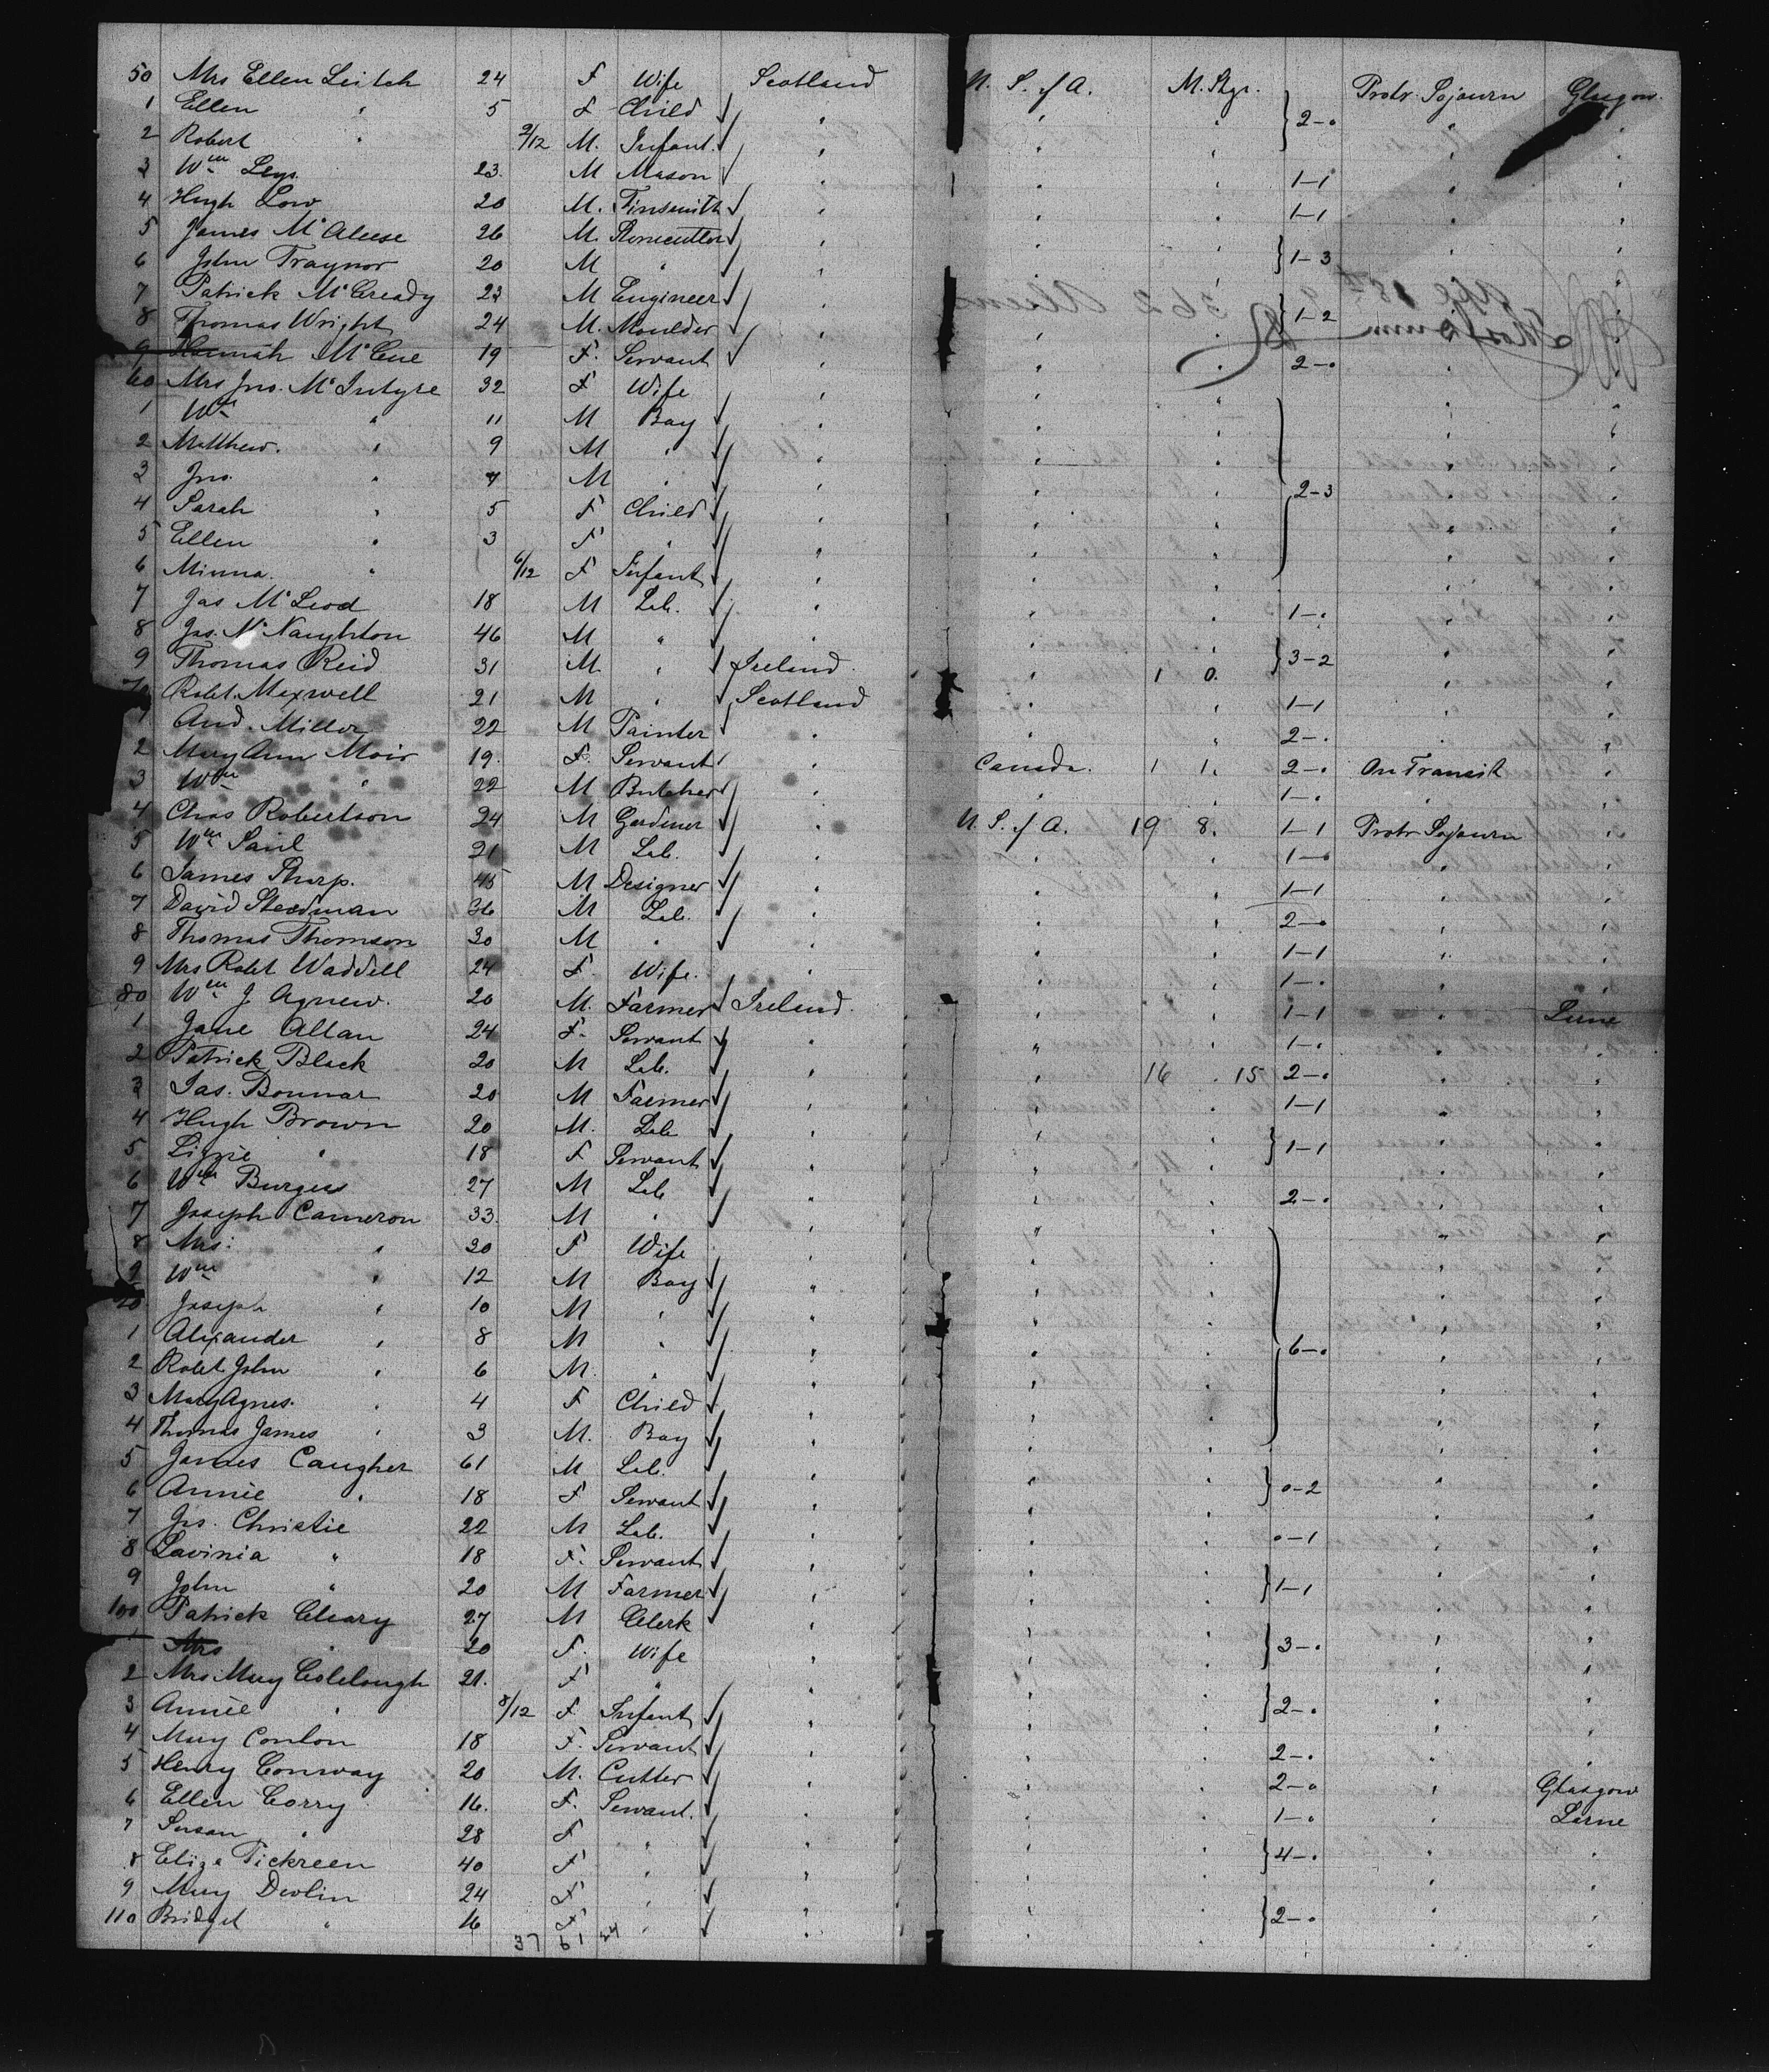 50 Mrs Ellen Leitch 24 F Wife Scotland U. S. of A. M. Stgr. Protr. Sojourn Glasgow.
1 Ellen " 5 F Child " " " 2-0 " "
2 Robert " 9/12 M. Infant. " " " " "
3 Wm Leys. 23. M Mason " " " 1-1 " "
4 Hugh Low 20 M. Tinsmith " " " 1-1 " "
5 James McAleese 26 M. Stonecutter " " " " "
6 John Traynor 20 M " " " " 1-3 " "
7 Patrick McCready 23 M Engineer " " " " "
8 Thomas Wright 24 M. Moulder " " " 1-2 " "
9 Hannah McCue 19 F. Servant " " " 2-0 " "
60 Mrs Jno. McIntyre 32 F Wife " " " " "
1 Wm " 11 M Boy " " " " "
2 Matthew. " 9 M " " " " " "
3 Jno. " 7 M " " " " 2-3 " "
4 Sarah " 5 F Child " " " " "
5 Ellen " 3 F " " " " " "
6 Minna. " 6/12 F Infant " " " " "
7 Jas McLeod 18 M Lab. " " " 1-0 " "
8 Jas. McNaughton 46 M " " " " " "
9 Thomas Reid 31 M. " Ireland " 1 0. 3-2 " "
70 Robt. Maxwell 21 M " Scotland " " 1-1 " "
1 And. Miller 22 M Painter " " " 2-0 " "
2 Mary Ann Moir 19. F. Servant " Canada. 1 1. 2-0 On Transit "
3 Wm " 22 M Butcher " " " 1-0 " "
4 Chas Robertson 24 M Gardener " U. S. of A. 19 8. 1-1 Protr Sojourn "
5 Wm Saul 21 M Lab. " " " 1-0 " "
6 James Sharp. 45 M Designer " " " 1-1 " "
7 David Steedman 36 M Lab. " " " 2-0 " "
8 Thomas Thomson 30 M " " " " 1-1 " "
9 Mrs Robt Waddell 24 F. Wife. " " " 1-0 " "
80 Wm J Agnew. 20 M. Farmer Ireland. " " 1-1 " Larne
1 Jane Allan 24 F. Servant " " " 1-0 " "
2 Patrick Black 20 M Lab. " " 16 . 15 2-0 " "
3 Jas. Bonnar 20 M Farmer " " " 1-1 " "
4 Hugh Brown 20 M. Lab " " " " "
5 Lizzie " 18 F Servant " " " 1-1 " "
6 Wm Burgess 27 M Lab " " " 2-0 " "
7 Joseph Cameron 33. M " " " " " "
8 Mrs: " 30 F Wife " " " " "
9 Wm " 12 M Boy " " " " "
90 Joseph " 10 M " " " " " "
1 Alexander " 8 M " " " " " "
2 Robt John " 6 M. " " " " 6-0 " "
3 Mary Agnes. " 4 F Child " " " " "
4 Thomas James " 3 M. Boy " " " " "
5 James Caugher 61 M Lab. " " " " "
6 Annie " 18 F Servant " " " 0-2 " "
7 Jas. Christie 22 M Lab. " " " 0-1 " "
8 Lavinia " 18 F. Servant " " " " "
9 John " 20 M Farmer " " " 1-1 " "
100 Patrick Cleary 27 M Clerk " " " " "
1 Mrs " 20 F. Wife " " " 3-0 " "
2 Mrs Mary Colclough 21. F " " " " " "
3 Annie " 8/12 F Infant " " " 2-0 " "
4 Mary Conlon 18 F. Servant " " " 2-0 " "
5 Henry Conway 20 M. Cutter " " " 2-0 " Glasgow
6 Ellen Corry 16. F. Servant. " " " 1-0 " Larne
7 Susan " 28 F " " " " " "
8 Eliza Pickreen 40 F " " " " 4-0 " "
9 Mary Devlin 24 F " " " " " "
110 Bridget " 16 F " " " " 2-0 " "
37 61